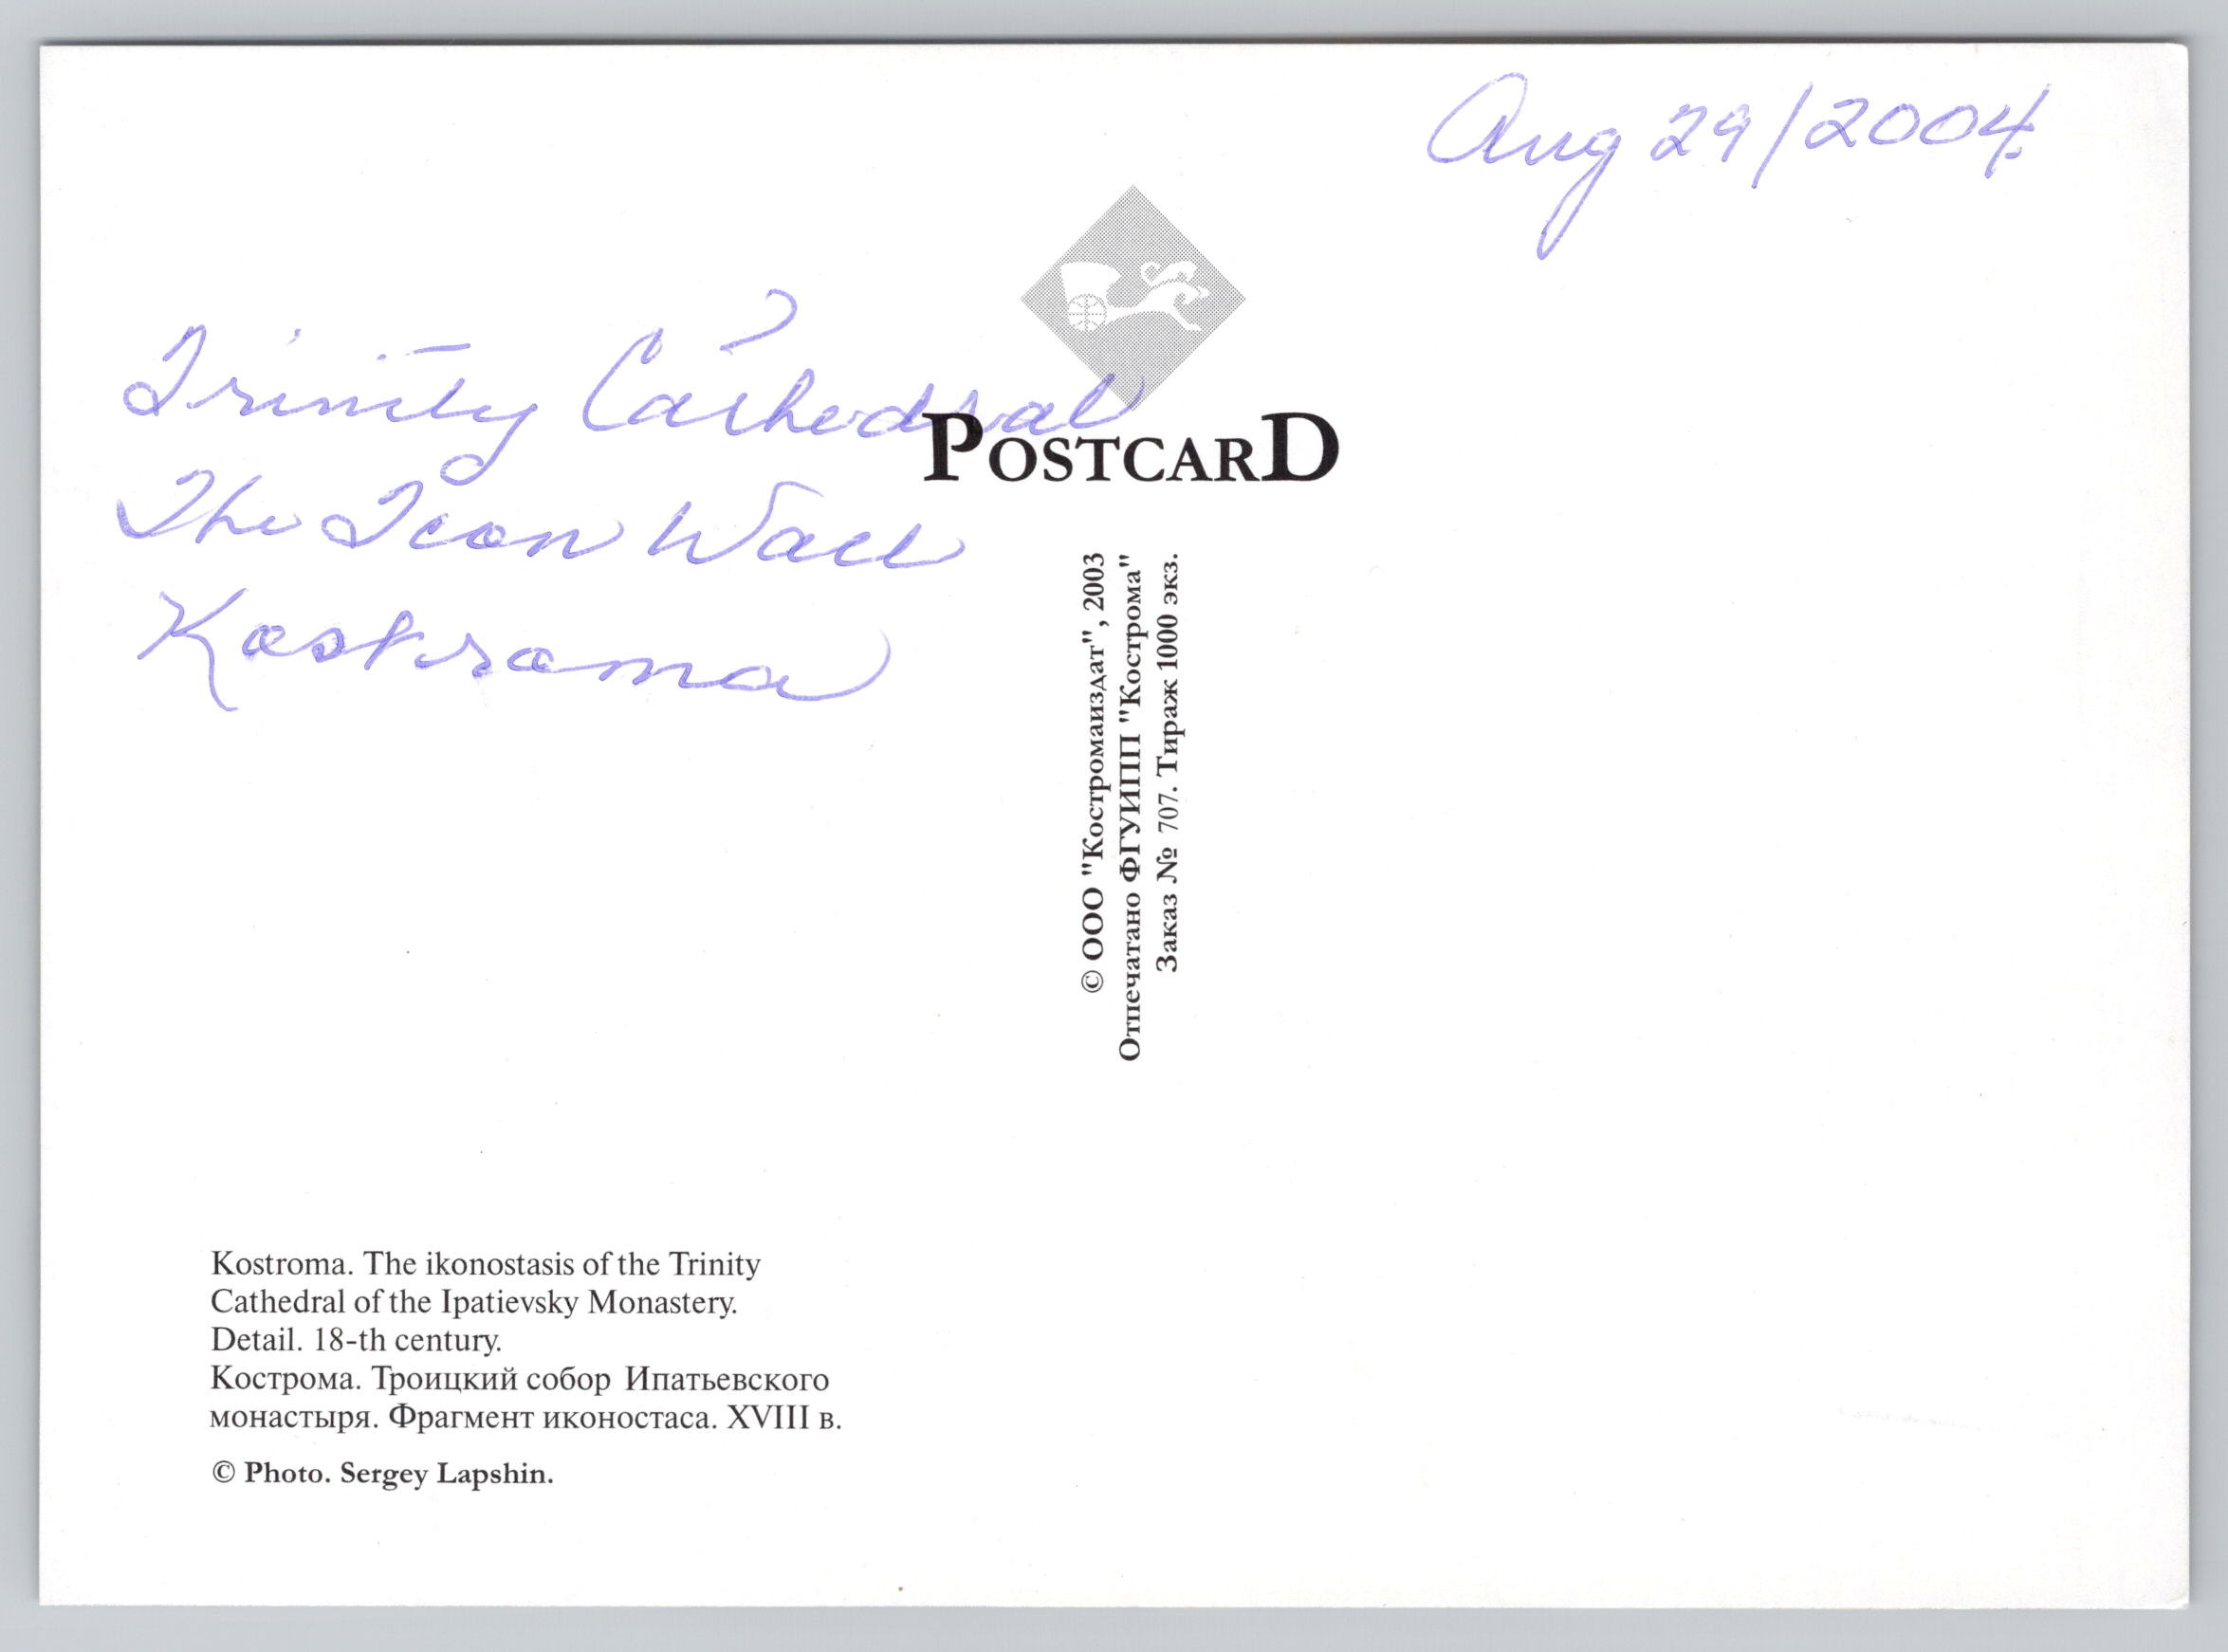 Aug 29/2004
Trinity Cathedral
The Icon Wall
Kostroma
POSTCARD
© ООО "Костромаиздат", 2003
Отпечатано ФГУИПП "Кострома"
Заказ № 707. Тираж 1000 экз.
Kostroma. The ikonostasis of the Trinity
Cathedral of the Ipatievsky Monastery.
Detail. 18-th century.
Кострома. Троицкий собор Ипатьевского
монастыря. Фрагмент иконостаса. XVIII в.
© Photo. Sergey Lapshin.